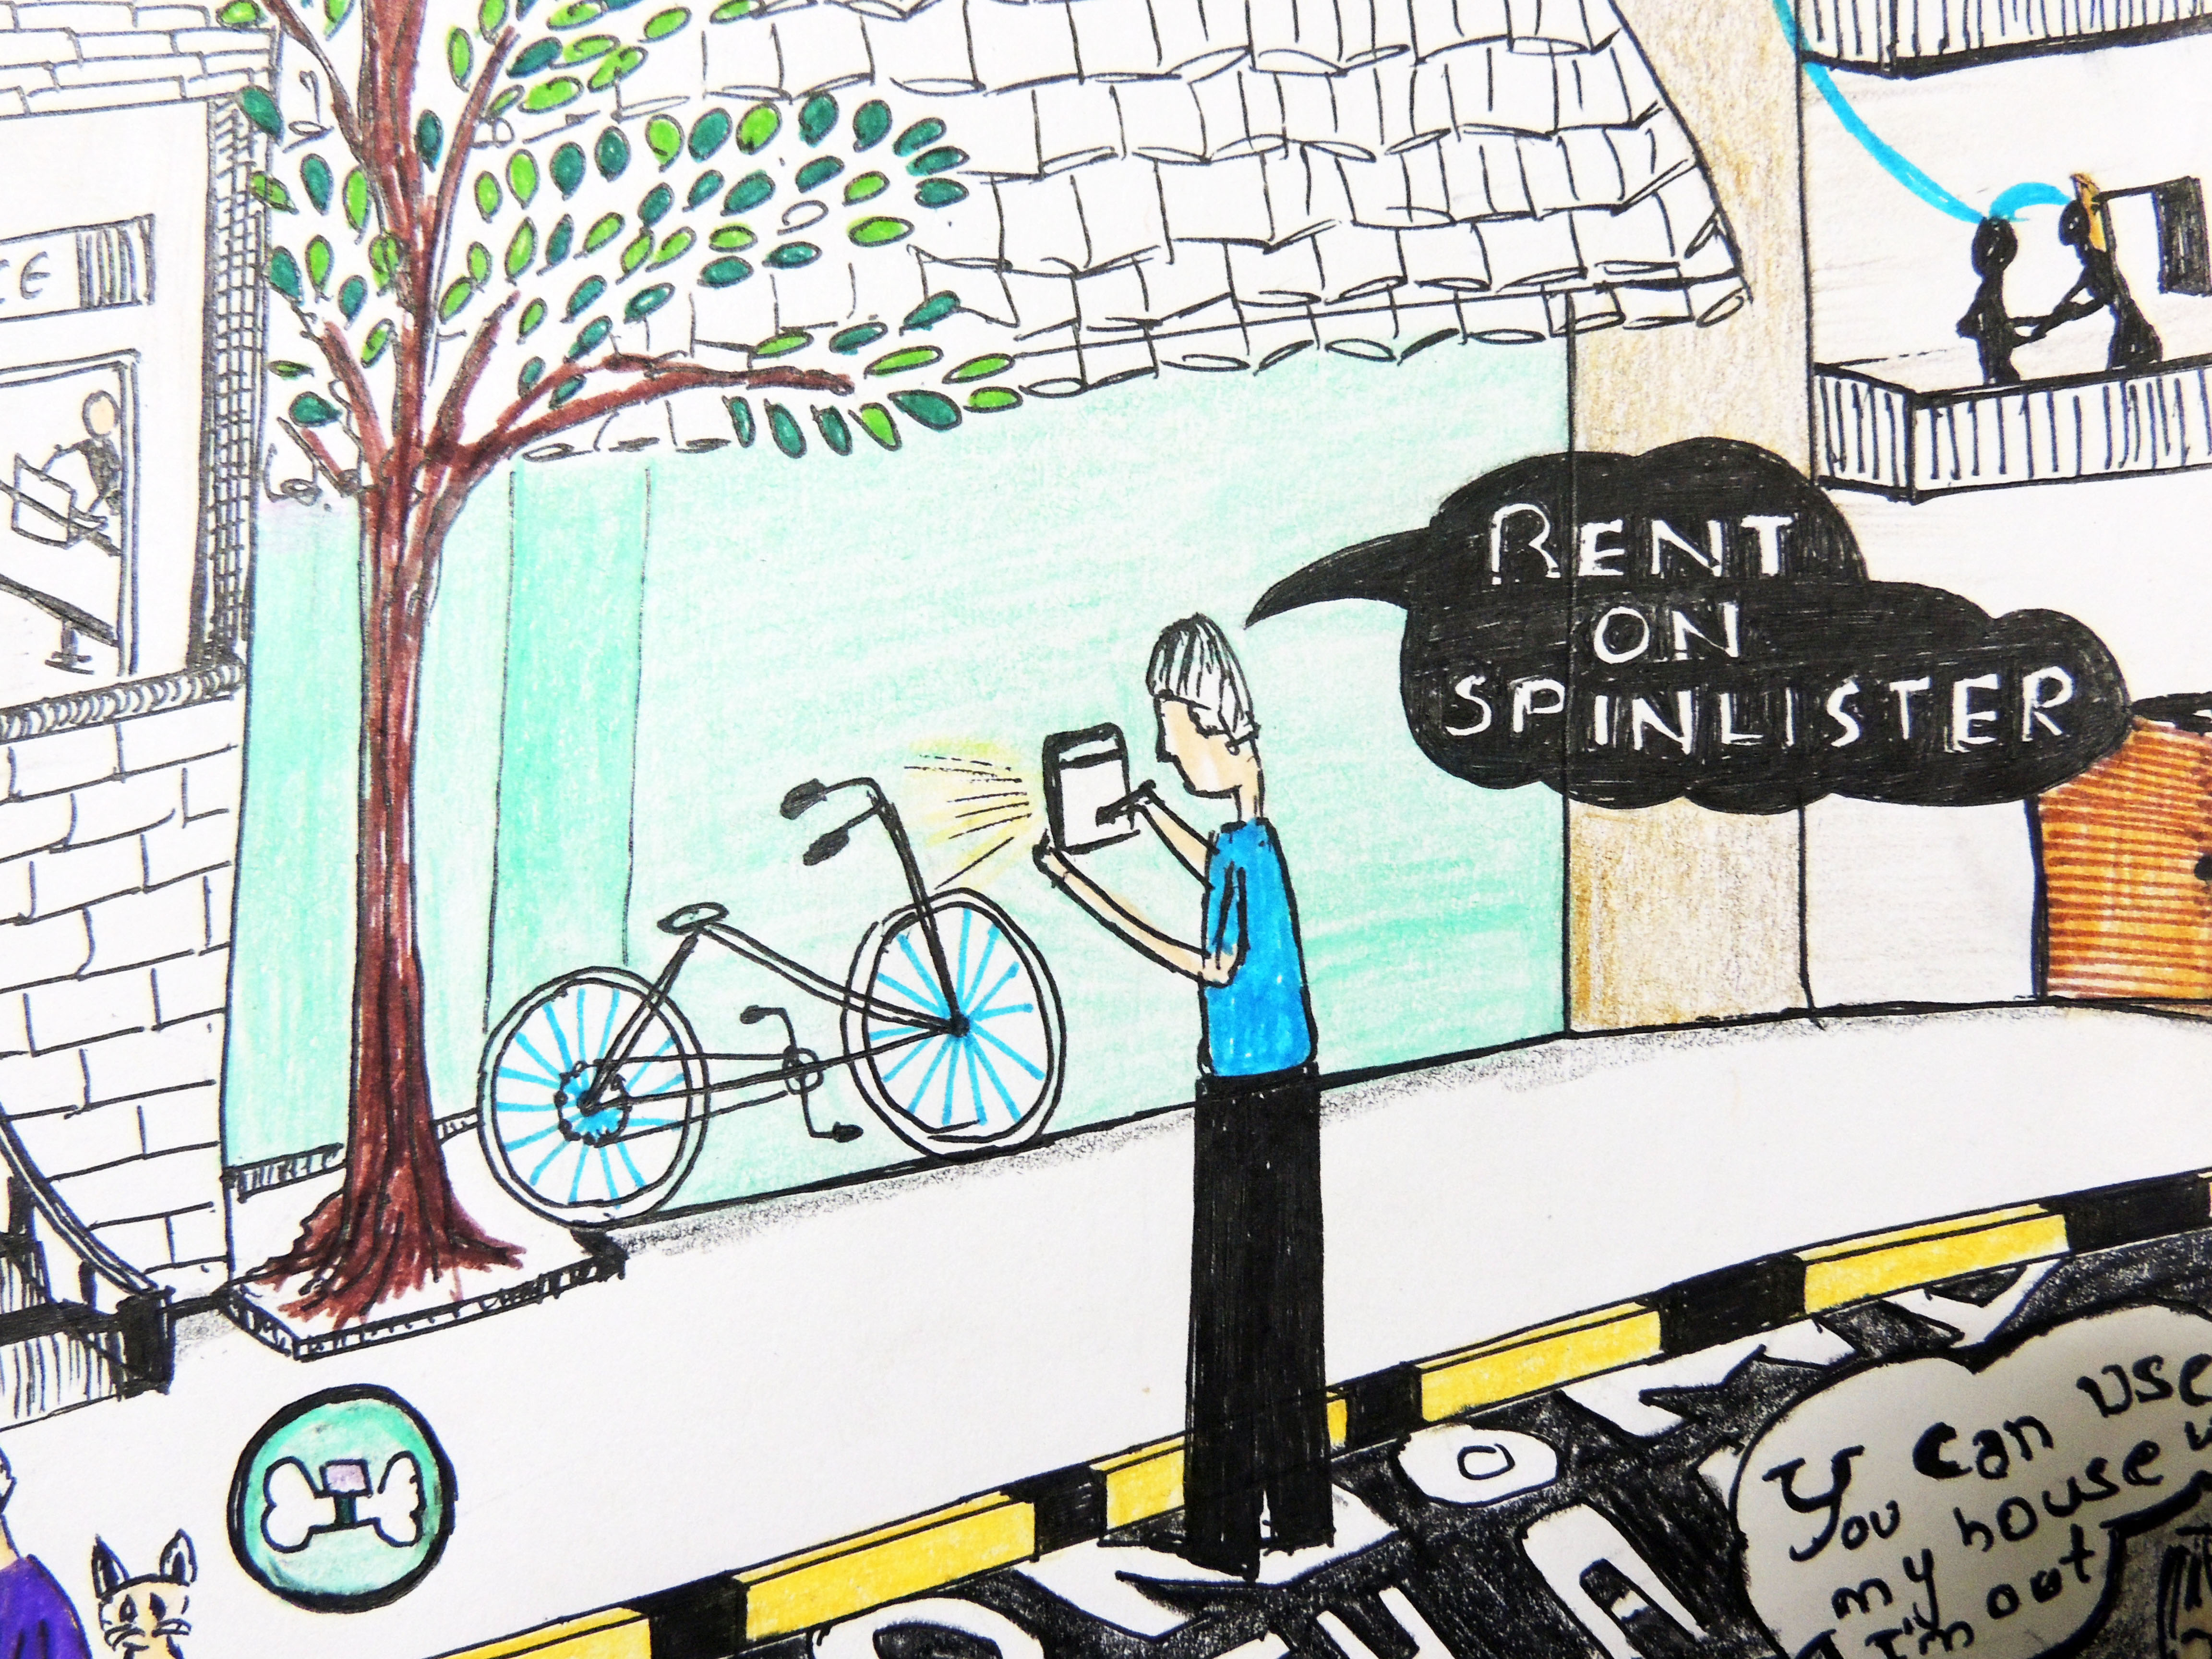 RENT
ON
SPINLISTER
You can use
my house
I'm out